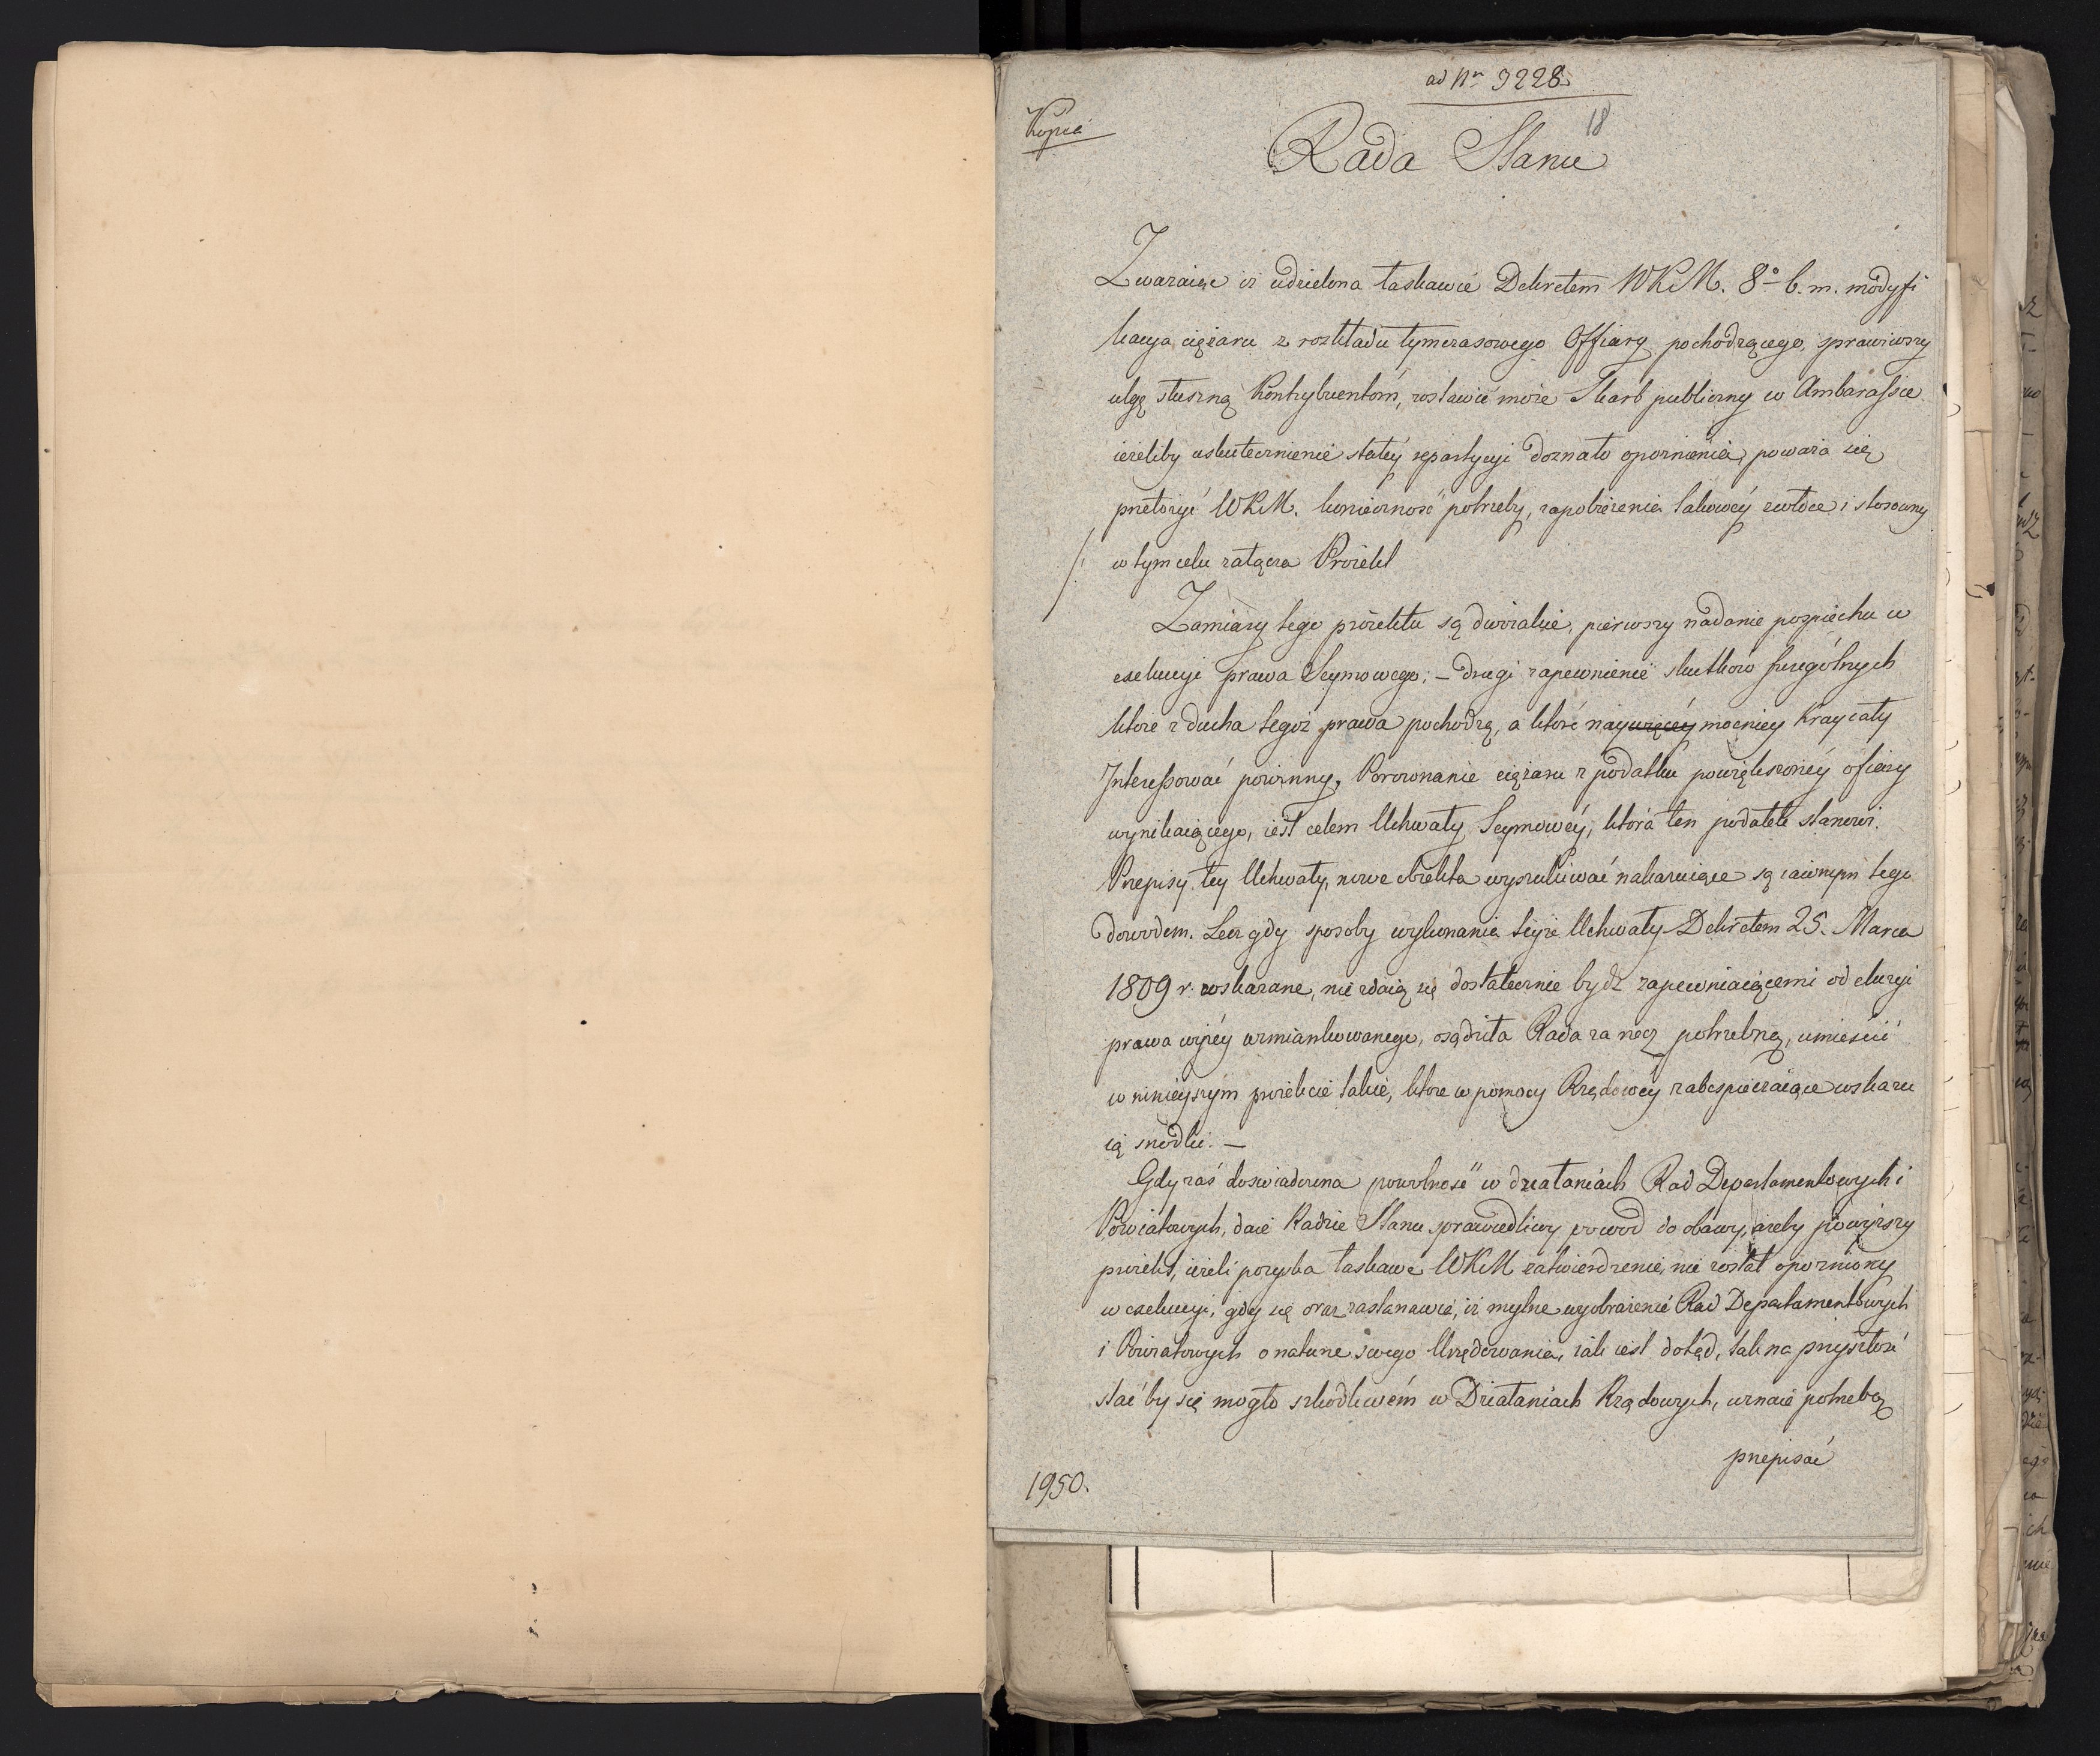 ad Nr 9228
18
Kopia
Rada Stanu
Zważaiąc iż udzielona łaskawie Dekretem WKM. 8º b. m. modyfi
kacya ciężaru z rozkładu tymczasowego Offiary pochodzącego, sprawiwszy
ulgę słuszną Kontrybuentom, zostawić może Skarb publiczny w Ambarassie
ieżeliby uskutecznienie stałey repartycyi doznało opoznienia, poważa się
przełożyć WKM. konieczność potrzeby, zapobieżenia takowey zwłoce i stosowny
w tym celu załącza Proiekt
Zamiary tego proiektu są dwoiakie, pierwszy nadanie pospiechu w
exekucyi prawa Seymowego; – drugi zapewnienie skutkow szczególnych
ktore z ducha tegoż prawa pochodzą, a ktore naywięcey mocniey Kray cały
Interessować powinny. Porownanie ciężaru z podatku powiększoney ofiary
wynikaiącego, iest celem Uchwały Seymowey, która ten podatek stanowi.
Przepisy tey Uchwały, nowe obiekta wyszukiwać nakazuiące są iawnym tego
dowodem. Lecz gdy sposoby wykonania teyże Uchwały Dekretem 25. Marca
1809 r. wskazane, nie zdaią się dostatecznie bydź zapewniaiącemi od eluzyi
prawa wyżey wzmiankowanego, osądziła Rada za rzecz potrzebną, umieścić
w ninieyszym proiekcie takie, ktore w pomocy Rządowey zabespieczaiące wskazu
ią srzodki. –
Gdy zaś doswiadczona powolność w działaniach Rad Departamentowych i
Powiatowych, daie Radzie Stanu sprawiedliwy powod do obawy, ażeby powyższy
proiekt, ieżeli pozyska łaskawe WKM zatwierdzenie, nie został opozniony
w exekucyi, gdy się oraz zastanawia, iż mylne wyobrażenie Rad Departamentowych
i Powiatowych o naturze swego Urzędowania, iak iest dotąd, tak na przyszłość
stać by się mogło szkodliwém w Działaniach Rządowych, uznaie potrzebę
przepisać
1950.